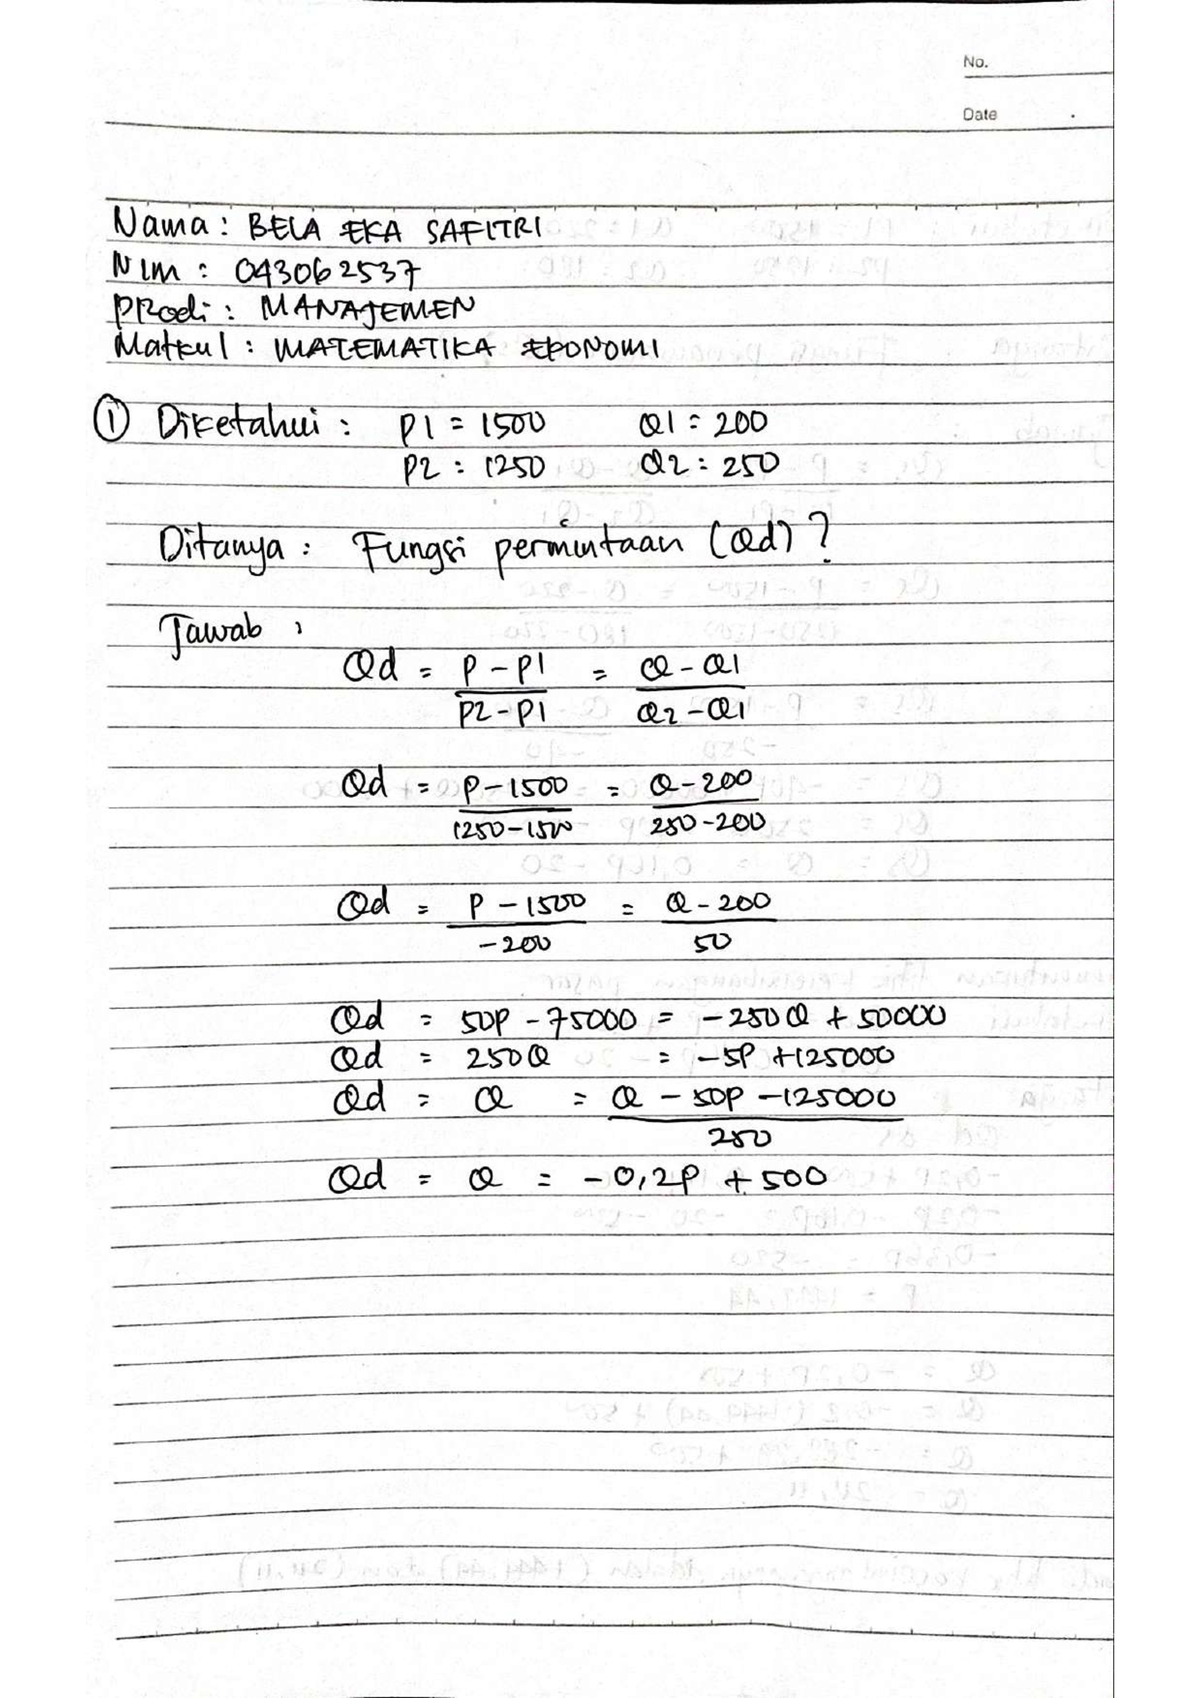 No.
Date
Nama : BELA EKA SAFITRI
NIM : 043062537
PRodi : MANAJEMEN
Matkul : MATEMATIKA EKONOMI
① Diketahui : P1 = 1500 Q1 = 200
P2 : 1250 Q2 : 250
Ditanya : Fungsi permintaan (Qd) ?
Jawab :
Qd = P - P1 / P2 - P1 = Q - Q1 / Q2 - Q1
Qd = P - 1500 / 1250 - 1500 = Q - 200 / 250 - 200
Qd = P - 1500 / -200 = Q - 200 / 50
Qd = 50P - 75000 = -250Q + 50000
Qd = 250Q = -5P + 125000
Qd = Q = Q - 50P - 125000 / 250
Qd = Q = -0,2P + 500